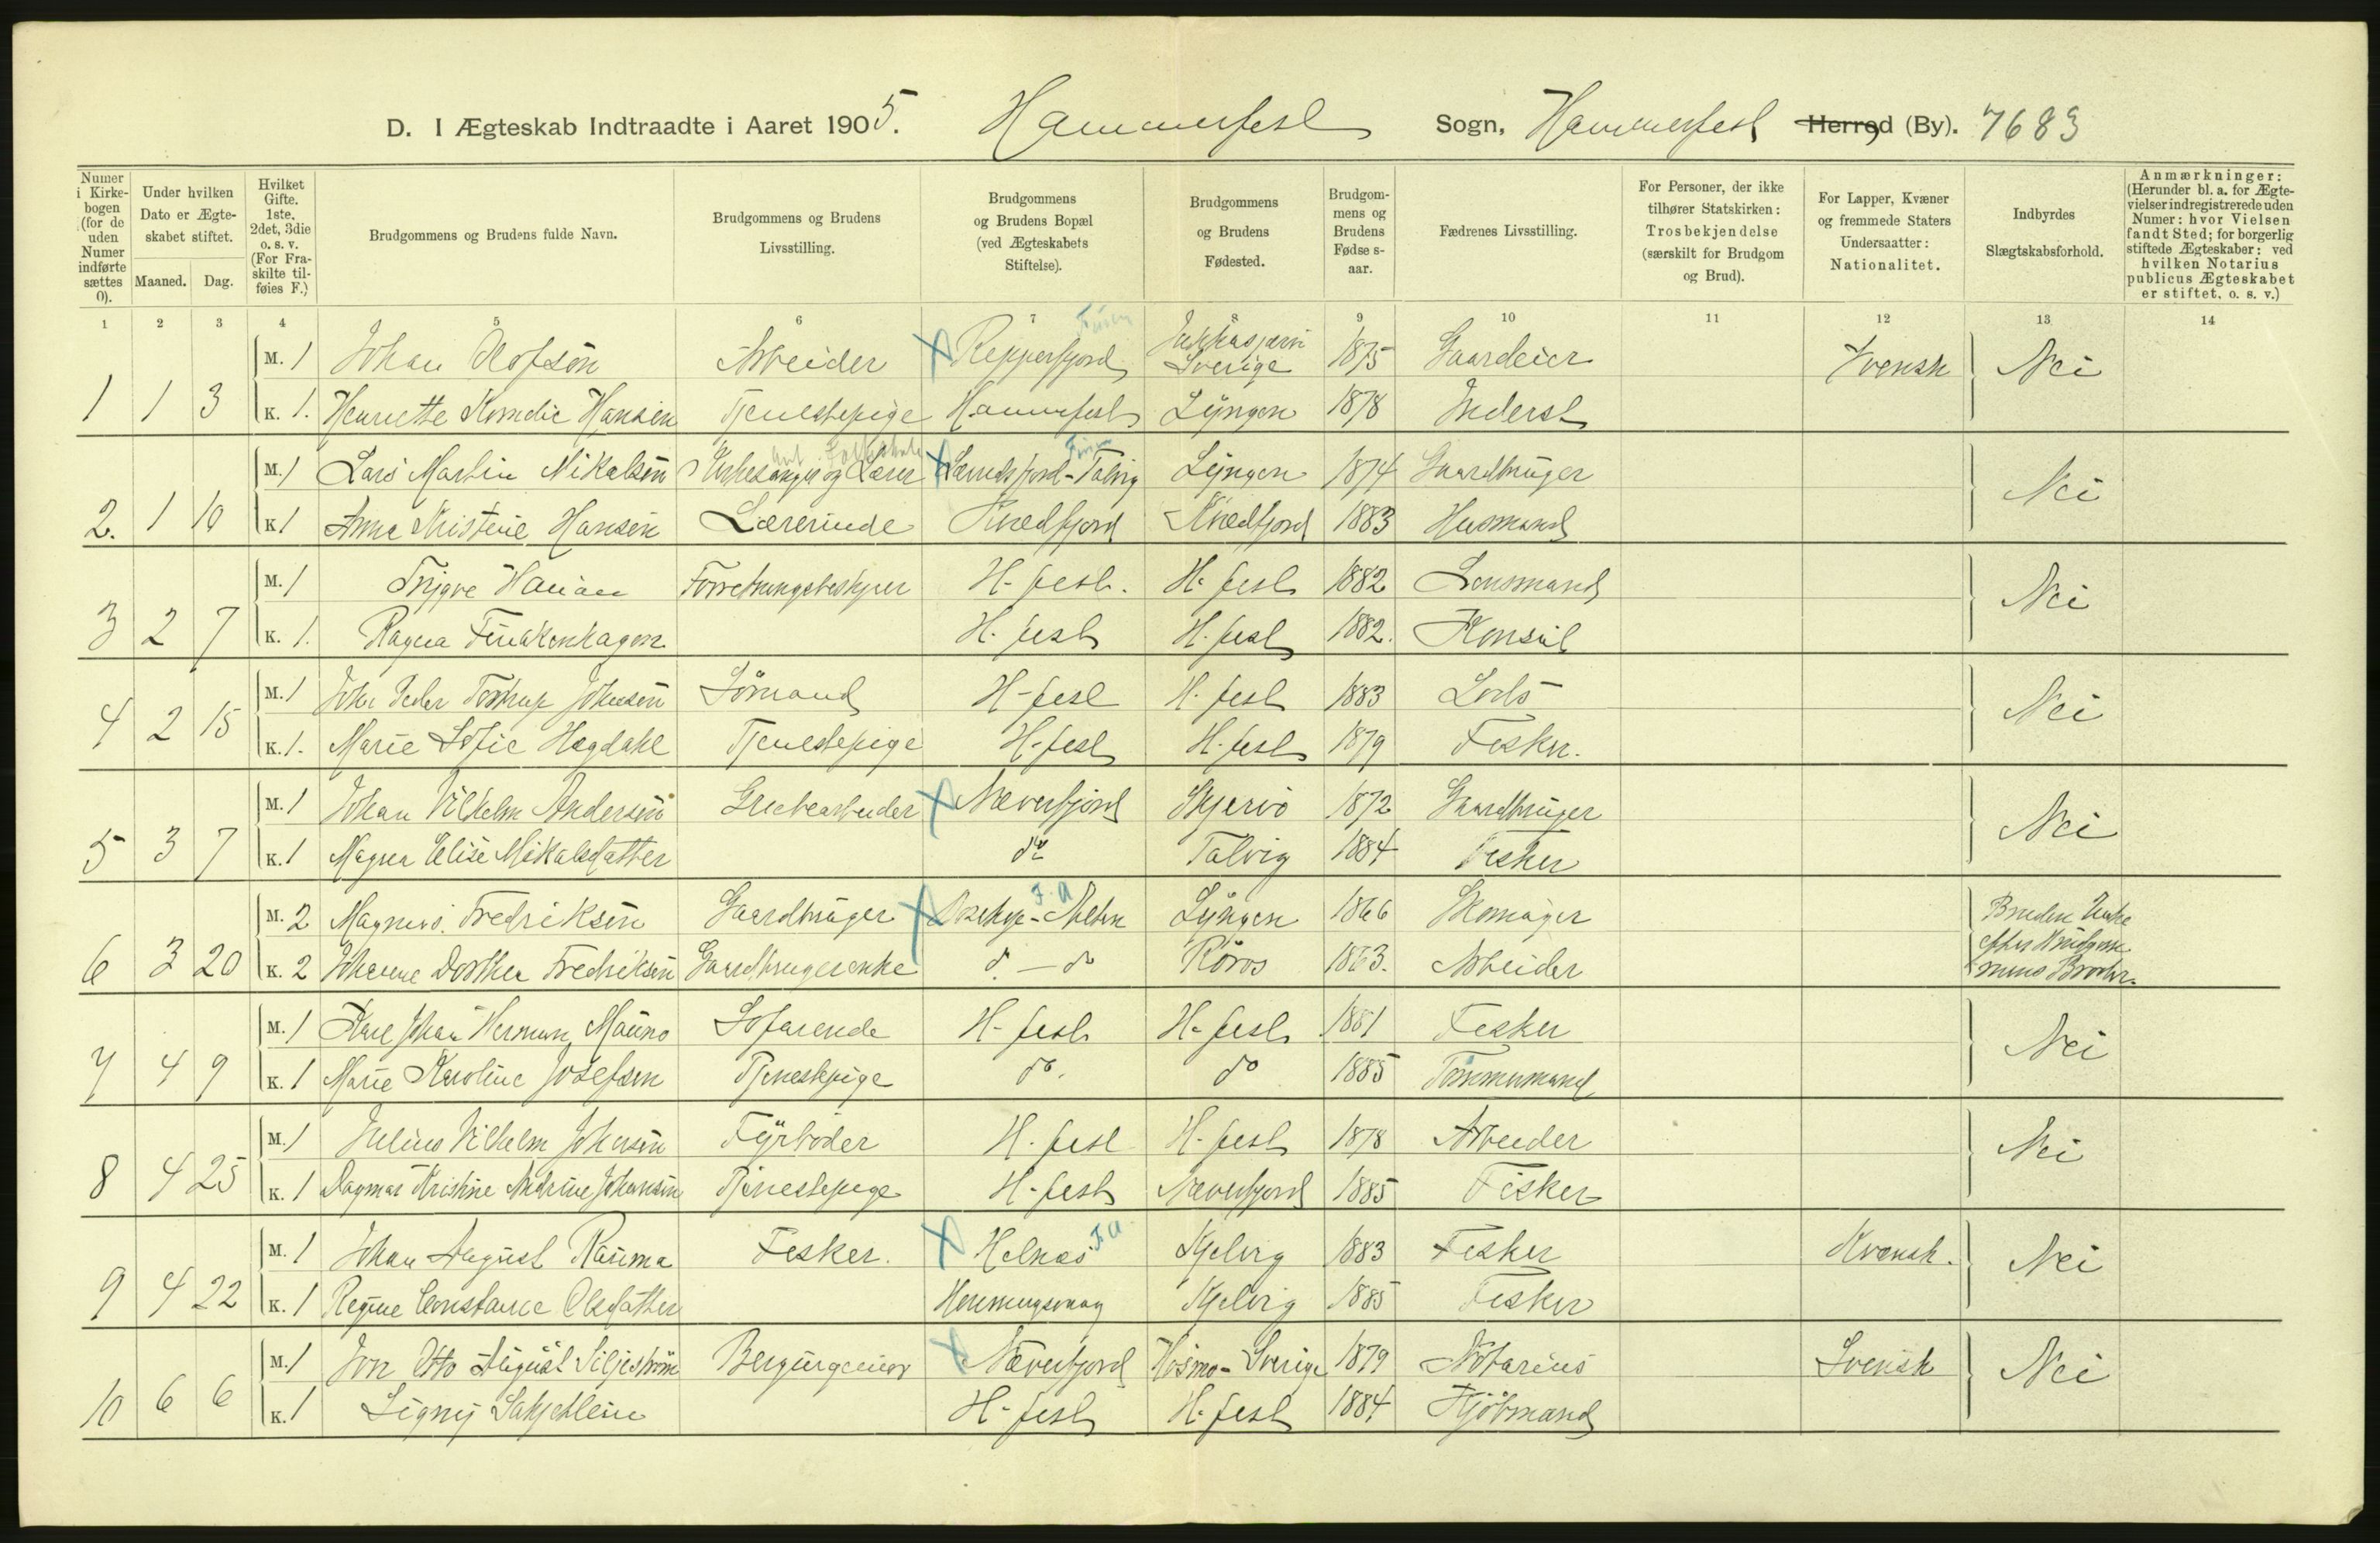 D. I Ægteskab Indtraadte i Aaret 1905. Hammerfest Sogn, Hammerfest Herred (By). 7683
Numer i Kirkebogen (for de uden Numer indførte sættes 0).
Under hvilken Dato er Ægteskabet stiftet.
Maaned. Dag.
Hvilket Gifte. 1ste, 2det, 3die o. s. v. (For Fraskilte tilføies F.)
Brudgommens og Brudens fulde Navn.
Brudgommens og Brudens Livsstilling.
Brudgommens og Brudens Bopæl (ved Ægteskabets Stiftelse).
Brudgommens og Brudens Fødested.
Brudgommens og Brudens Fødse s-aar.
Fædrenes Livsstilling.
For Personer, der ikke tilhører Statskirken: Trosbekjendelse (særskilt for Brudgom og Brud).
For Lapper, Kvæner og fremmede Staters Undersaatter: Nationalitet.
Indbyrdes Slægtskabsforhold.
Anmærkninger: (Herunder bl. a. for Ægtevielser indregistrerede uden Numer: hvor Vielsen fandt Sted; for borgerlig stiftede Ægteskaber: ved hvilken Notarius publicus Ægteskabet er stiftet. o. s. v.)
1 2 3 4 5 6 7 8 9 10 11 12 13 14
M. 1 Johan Olofsön Arbeider Repperfjord Jukkasjærvi Sverige 1875 Gaardeier Svensk Nei
1 1 3 K. 1. Henriette Hansen Tjenestepige Hammerfest Lyngen 1878 Inderst
M. 1 Lars Martin Mikalsen Kirkesanger og Lærer Talvig Lyngen 1874 Gaardbruger Nei
2. 1 10 K. 1 Anna Kristine Hansen Lærerinde Kvædfjord Kvædfjord 1883 Husmand
M. 1 Trygve Hauan Forretningsbestyrer H-fest. H-fest 1882 Lensmand Nei
3 2 7 K. 1. Ragna Finckenhagen H.fest H.fest 1882. Konsul
M. 1 Johan Peder Johnsen Sømand H-fest H.fest 1883 Lods Nei
4 2 15 K. 1. Marie Sofie Hegdahl Tjenestepige H-fest H-fest 1879 Fisker.
M. 1 Johan Vilhelm Andersen Grubearbeider Næverfjord Skjervö 1872 Gaardbruger Nei
5 3 7 K. 1 Magna Elise Mikalsdatter do Talvig 1884 Fisker
M. 2 Magnus Fredriksen Gaardbruger Lyngen 1866 Skomager Bruden Enke efter Brudgommens Broder.
6 3 20 K. 2 Dorthea Fredriksen Gaardbrugerenke do — do Röros 1863. Arbeider
M. 1 Karl Johan Herman Mauno Söfarende H-fest H-fest 1881 Fisker Nei
7 4 9 K. 1 Marie Karoline Josefsen Tjenestepige do. do 1885 Tømmermand
M. 1 Julius Vilhelm Johnsen Fyrböder H-fest H-fest 1878 Arbeider Nei
8 4 25 K. 1 Dagmar Kristine Andrine Johansen Tjenestepige H-fest Næverfjord 1885 Fisker
M. 1 Johan August Rauma Fisker. Helnæs Kjelvig 1883 Fisker Kvænsk. Nei
9 4 22 K. 1 Regine Constance Olsdatter Honningsvaag Kjelvig 1885 Fisker
M. 1 Jon Otto August Siljeström Bergingeniör Næverfjord Hosmo-Sverige 1879 Notarius Svensk Nei
10 6 6 K. 1 Signy H-fest H-fest 1884 Kjöbmand